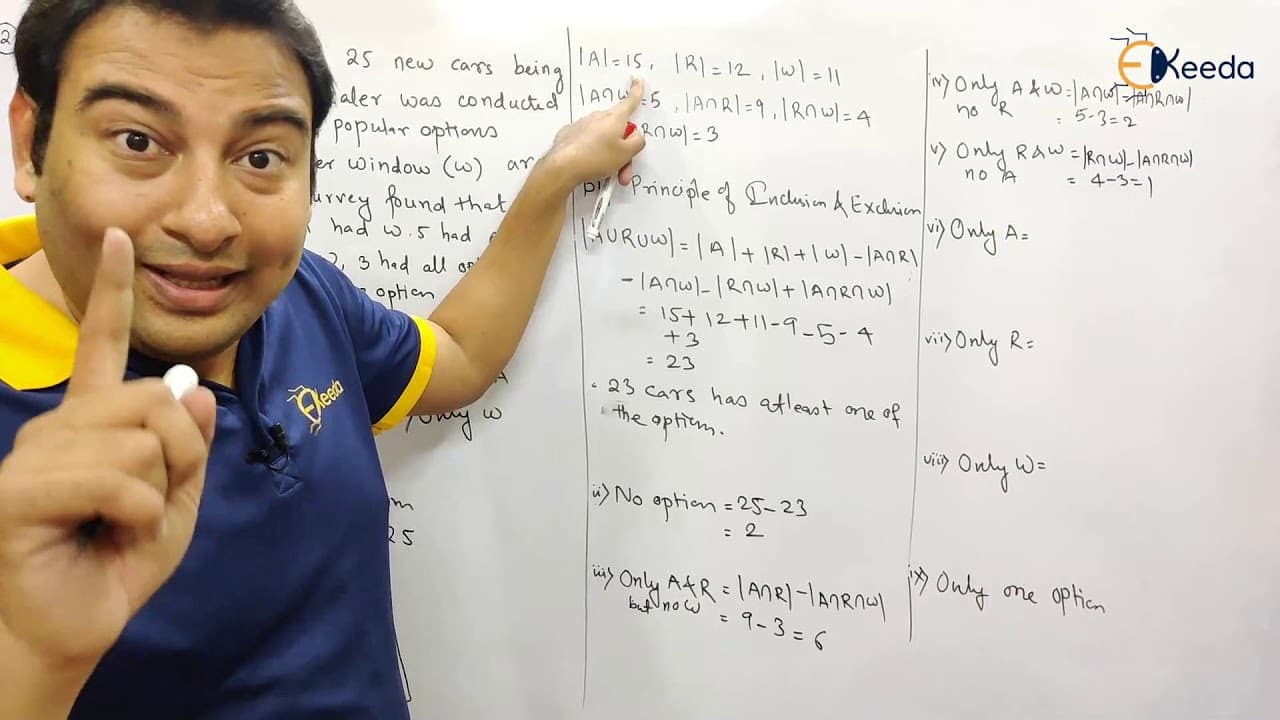 2
25 new cars being
aler was conducted
popular options
er window (w) ar
urvey found that
had w. 5 had
2, 3 had all op
option
A
Only w
m
25
|A|=15, |R|=12, |W|=11
|A∩W|=5, |A∩R|=9, |R∩W|=4
R∩W|=3
Principle of Inclusion & Exclusion
|A∪R∪W| = |A|+|R|+|W|-|A∩R|
-|A∩W|-|R∩W|+|A∩R∩W|
= 15+12+11-9-5-4
+3
= 23
23 cars has atleast one of
the option.
ii) No option = 25-23
= 2
iii) Only A & R = |A∩R|-|A∩R∩W|
but no W = 9-3=6
iv) Only A & W = |A∩W|-|A∩R∩W|
no R = 5-3=2
v) Only R & W = |R∩W|-|A∩R∩W|
no A = 4-3=1
vi) Only A=
vii) Only R=
viii) Only W=
ix) Only one option
EKeeda
EKeeda